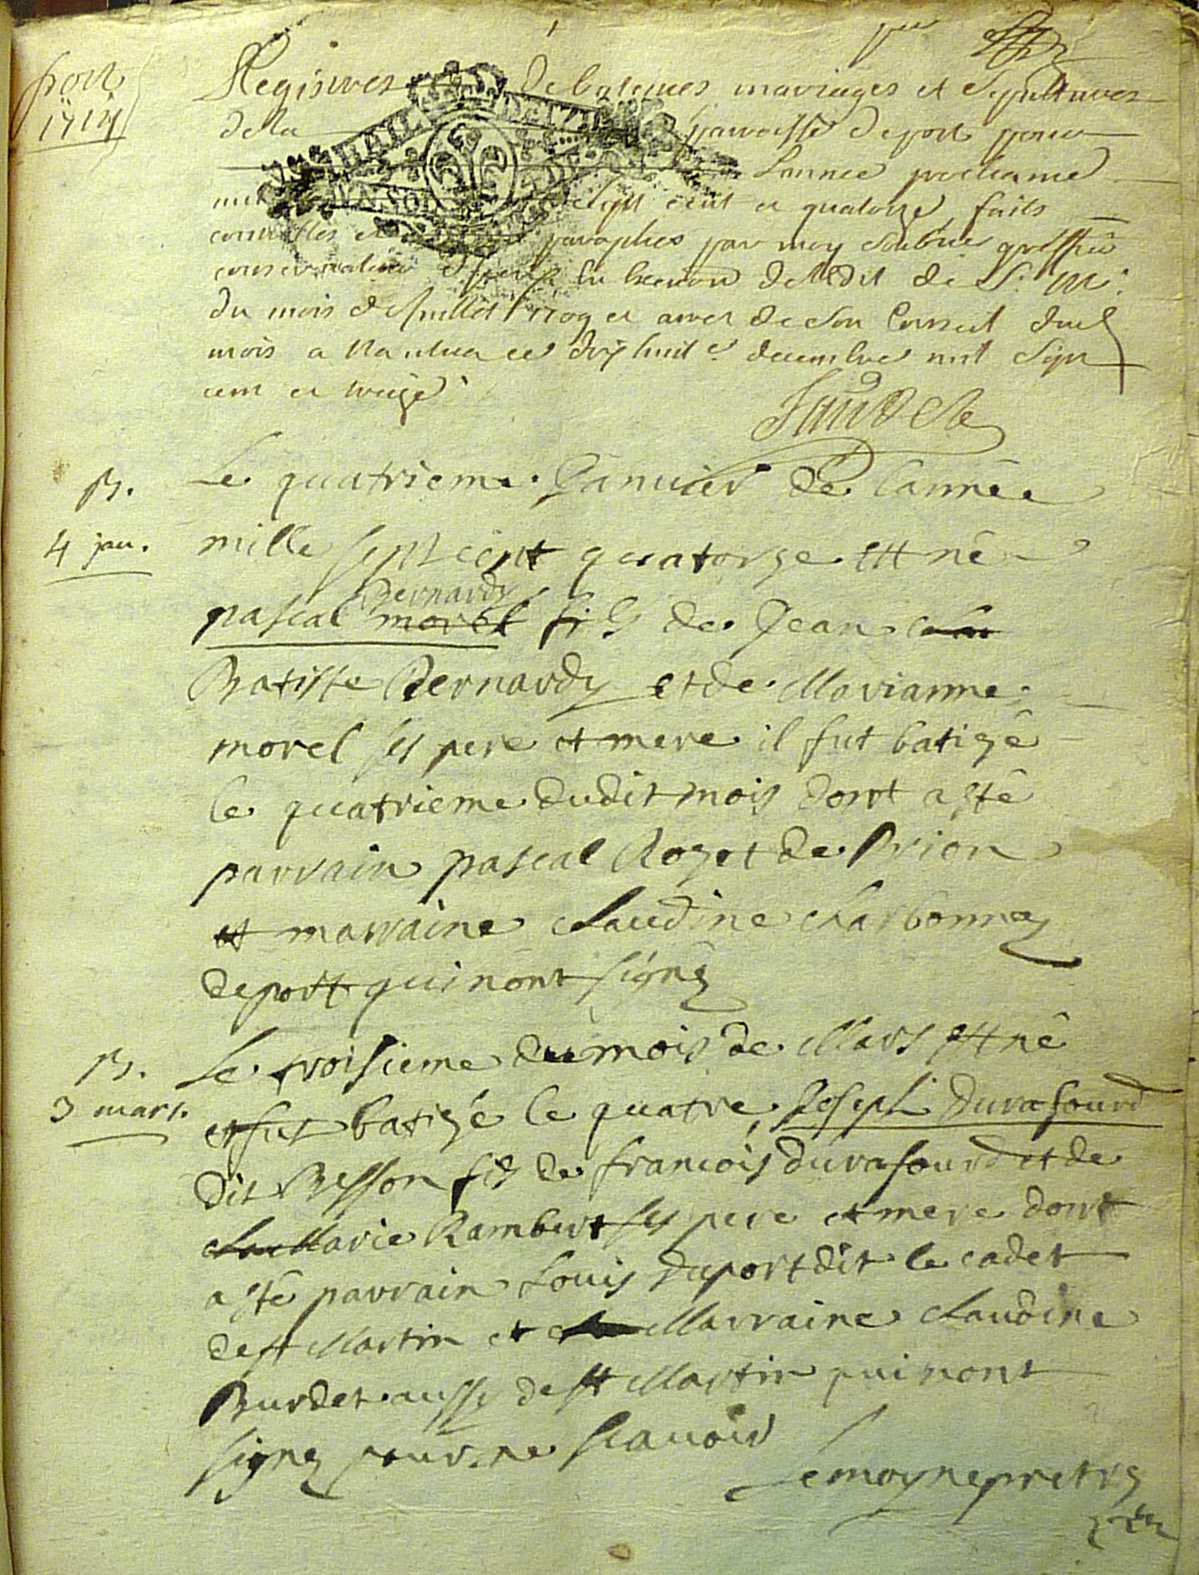 port
1714
Registres de batemes mariages et sepultures
de la parroisse de port pour
l'année prochaine
mil sept cent et quatorze faits
cottes et paraphes par moy greffier
conservateur en execution de ledit de S. M.
du mois de Juillet 1709 et arrest de son Conseil dud
mois a Nantua ce dix huit decembre mil sept
cent et treize
B.
4 jan.
Le quatrieme Janvier de lannée
mille sept cent quatorze est né
Bernardy
pascal morel fils de Jean
Batiste Bernardy et de Marianne
morel ses pere et mere il fut batizé
le quatrieme dudit mois dont a esté
parrain pascal Rozet de Brion
et marraine Claudine charbonney
de port qui nont signé
B.
3 mars.
Le troisieme du mois de Mars est né
et fut batizé le quatre Joseph durafourd
dit Besson fils de francois durafourd et de
Marie Rambert ses pere et mere dont
a esté parrain Louis duport dit le cadet
de st Martin et Marraine Claudine
Burdet aussy de st Martin qui nont
signé pour ne scavoir
Lemoyne pretre